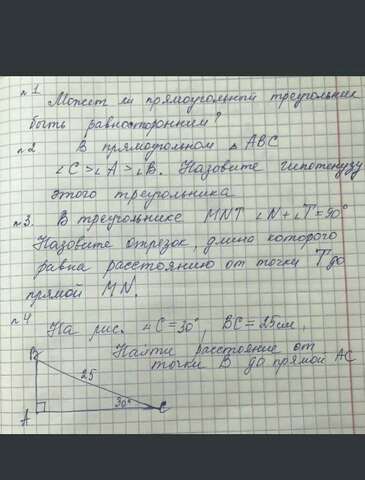 №1
Может ли прямоугольный треугольник
быть равносторонним?
№2 В прямоугольном △ ABC
∠C > ∠A > ∠B. Назовите гипотенузу
этого треугольника
№3. В треугольнике MNT ∠N + ∠T = 90°
Назовите отрезок, длина которого
равна расстоянию от точки T до
прямой MN.
№4
На рис. ∠C = 30°, BC = 25см,
Найти расстояние от
точки B до прямой AC
B
25
30°
A
C